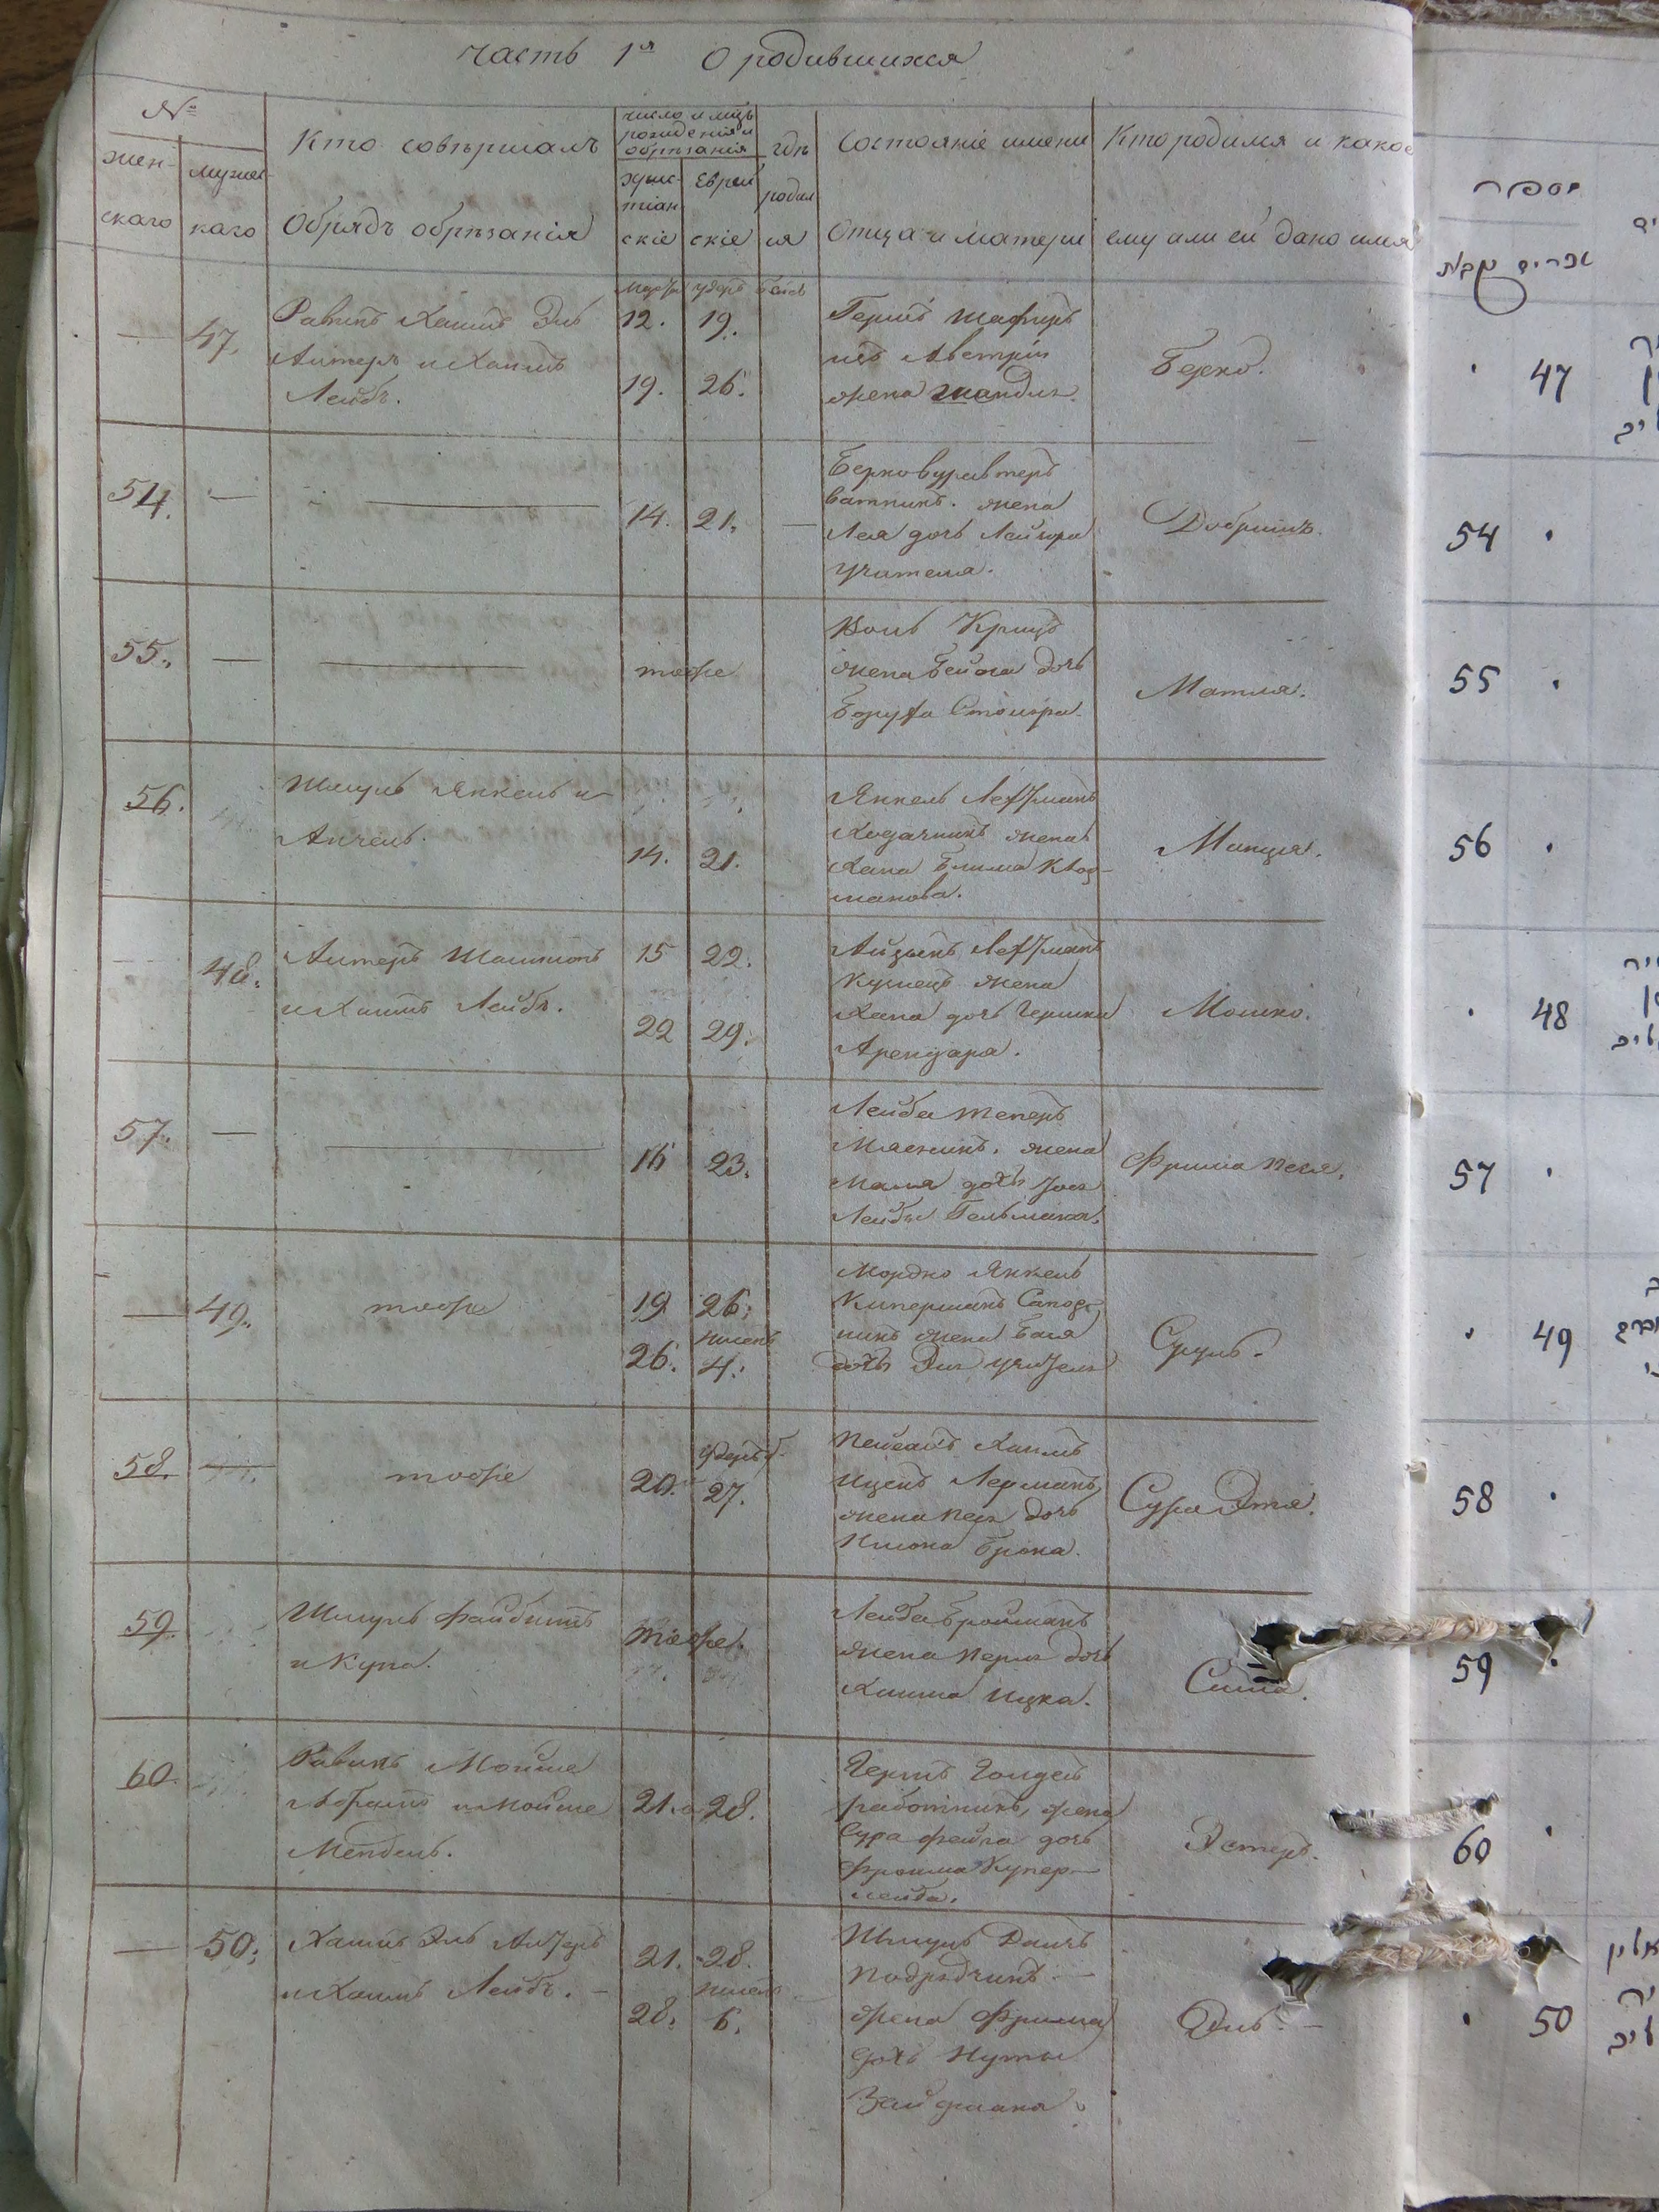 часть 1я О родившихся
№
жен-
скаго
мужес-
каго
Кто совершалъ
Обрядъ обрѣзанія
число и мцъ
рожденія и
обрѣзанія
хрис-
тіан
скіе
Еврей
скіе
гдѣ
родил
ся
Состояніе имени
Отца и Матери
Кто родился и какое
ему или ей дано имя
מספר
נקבות זכרים
— 47.
Равинъ Хаимъ Эль
Алтеръ и Хаимъ
Лейбъ.
Марта Удеръ Бейсъ
12. 19.
19. 26.
Гершъ Шафиръ
изъ Австріи
жена Шандля.
Берко.
47
54. —
14. 21. —
Берко
ватникъ. жена
Лея дочь Лейзора
учателя.
Добришъ.
54
55. —
тоже
Воль Крицъ
жена Бейла дочь
Боруха Столяра.
Матля.
55
56.
Шмуль Янкель и
Анчель.
14. 21.
Янкель Лехтманъ
жена
Хана Блима
манова.
Манця.
56
48.
Алтеръ Шалимонъ
и Хаимъ Лейбъ.
15 22.
22 29.
Айзыкъ Лехтманъ
Купецъ жена
Хана дочь Гершка
Арендара.
Мошко.
48
57. —
16 23.
Лейба Шеперъ
Мясникъ. жена
Маля дочь Іося
Лейбы Гельмана.
Фрима Песя.
57
— 49.
тоже
19 26.
Нисенъ
26. 4.
Мордко Янкель
Киперманъ Сапож
никъ жена Бася
дочь Эля учителя
Суруль.
49
58. —
тоже
Удеръ б.
20. 27.
Пейсахъ Хаимъ
Ицекъ Лерманъ
жена Песя дочь
Нисона Брона.
Сура Этя.
58
59.
Шмуль Файбишъ
и Купа.
тоже.
Лейба Бройманъ
жена Перля дочь
Хаима Ицка.
Сима.
59
60.
Равинъ Мойше
Абрамъ и Мойше
Мендель.
21. 28.
Гершъ Голдель
работникъ, жена
Сура Фейга дочь
Фроима Купер—
лейба.
Эстеръ.
60
— 50.
Хаимъ Эль Алтеръ
и Хаимъ Лейбъ. —
21. 28.
Нисенъ
28. 6.
Шмуль Даичъ
Подрядчикъ —
жена Фрима
дочь Нуты
Зайдмана.
Эль. —
50